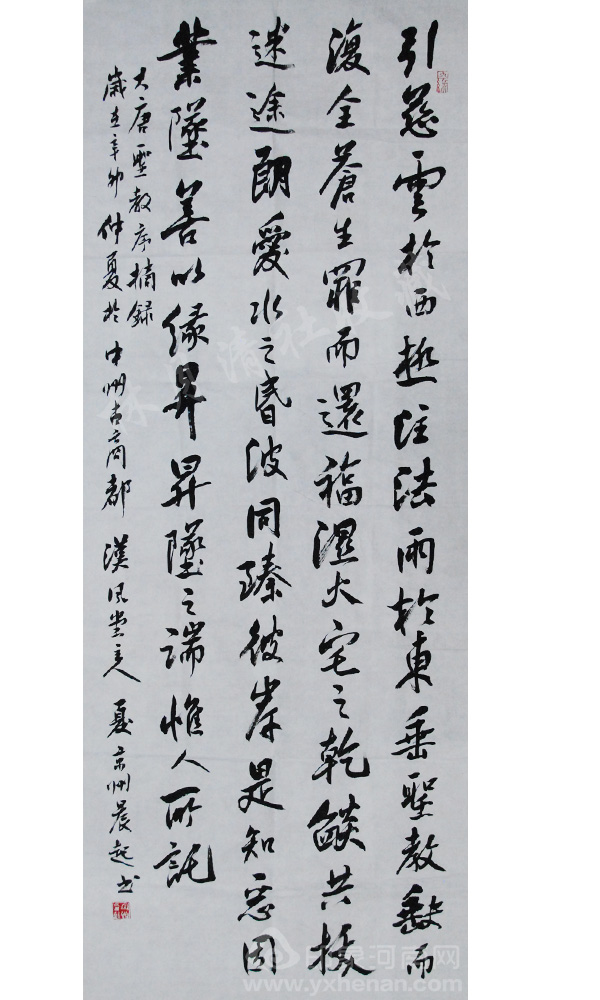 引慈雲於西極注法雨於東垂聖教缺而
復全蒼生罪而還福濕火宅之乾燄共拔
迷途朗愛水之昏波同臻彼岸是知惡因
業墜善以緣昇昇墜之端惟人所託
大唐聖教序摘録
歲在辛卯仲夏於中州古商都 漢風堂主人 夏京州晨起书
印象河南网
www.yxhenan.com